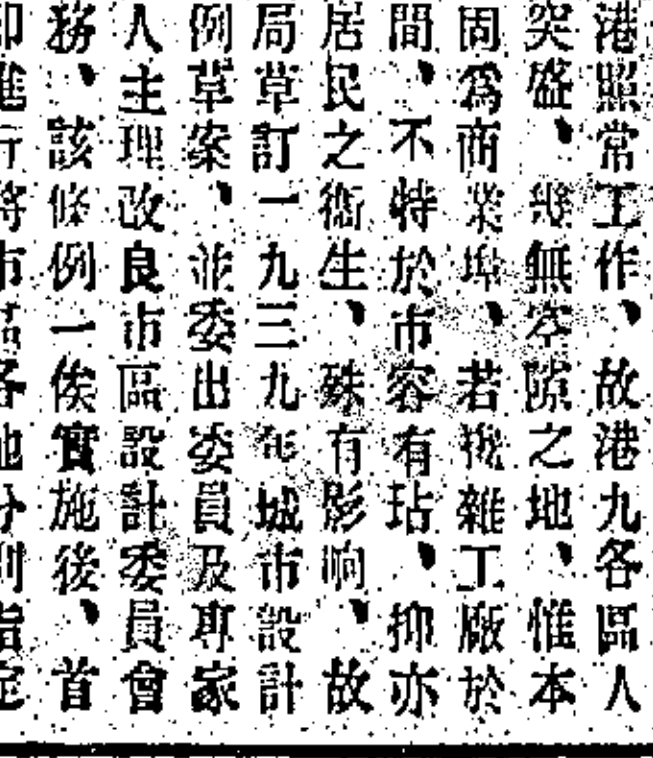 港照常工作、故港九各區人
突盛、幾無空隙之地、惟本
周爲商業埠、若攙雜工廠於
間、不特於市容有玷、抑亦
居民之衞生、殊有影响、故
局草訂一九三九年城市設計
例草案、並委出委員及專家
人主理改良市區設計委員會
務、該條例一俟實施後、首
卽進行將市區各地分別指定